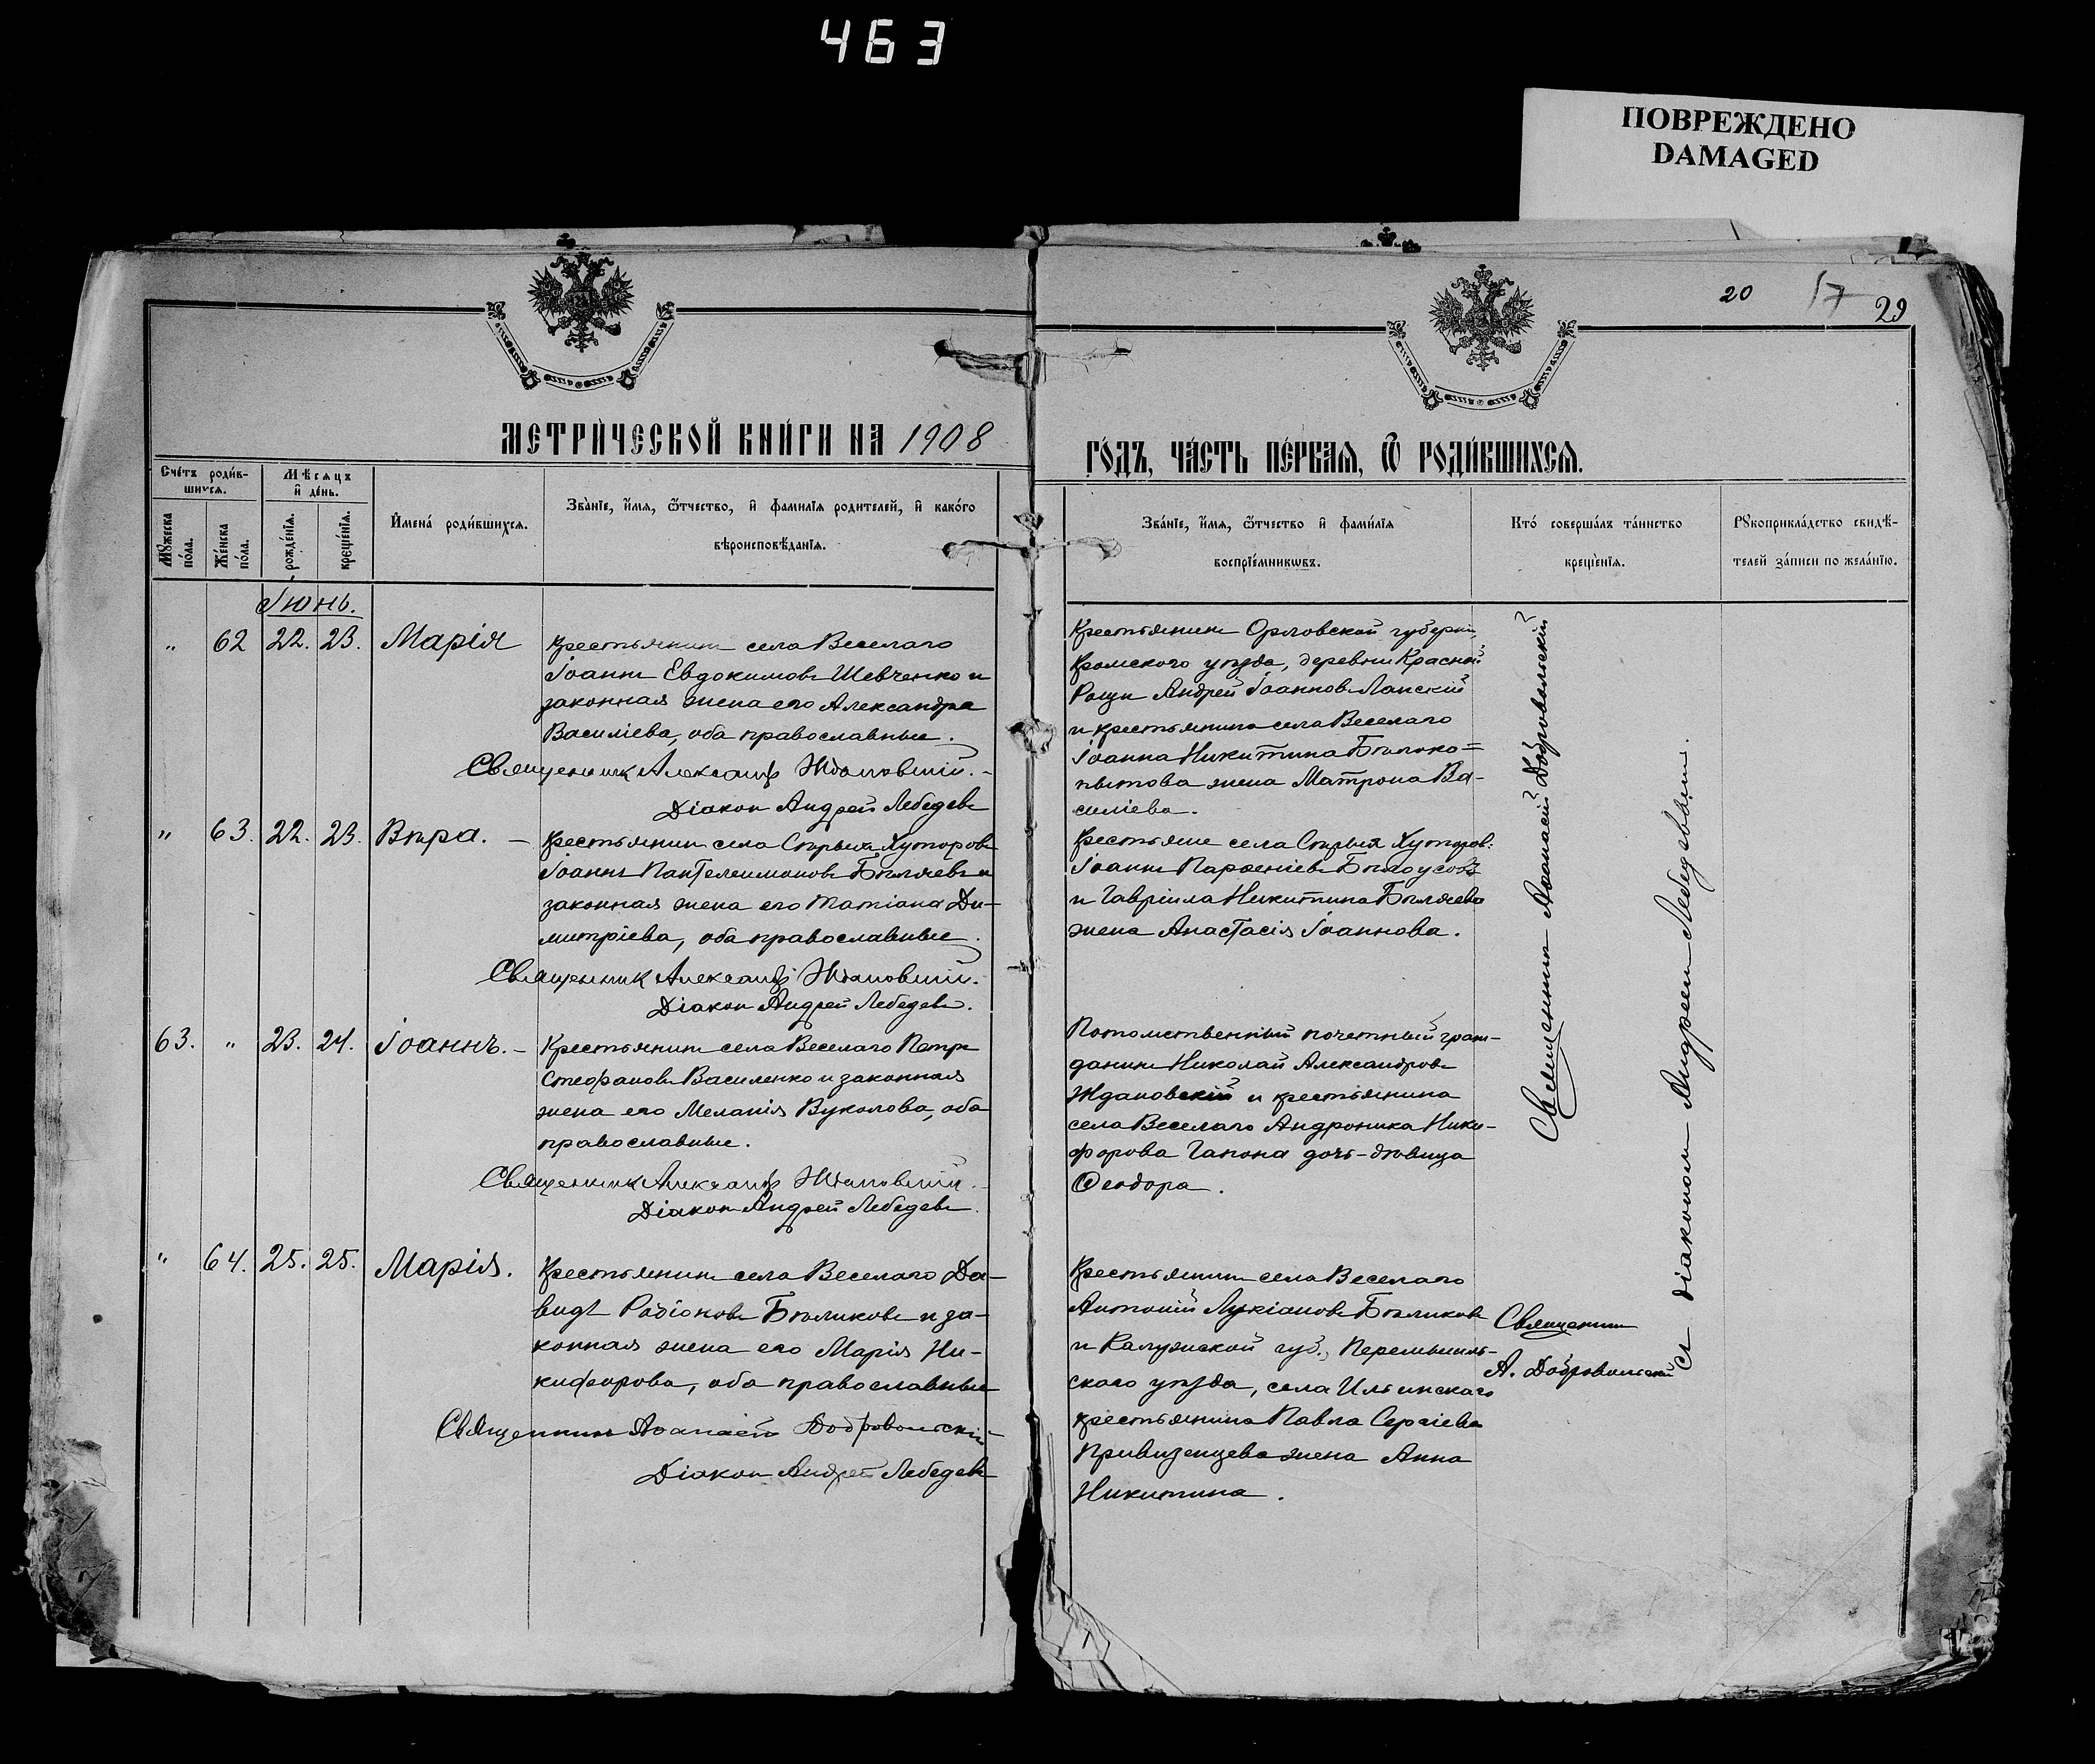 463
ПОВРЕЖДЕНО
DAMAGED
20 17 29
МЕТРИ́ЧЕСКОЙ КНИ́ГИ НА 1908
ГО́ДЪ, ЧА́СТЬ ПЕ́РВАЯ, Ѿ РОДИ́ВШИХСЯ.
Сче́тъ роди́в-
шихся.
Мѣ́сяцъ
и҆ де́нь.
Мꙋ́жеска
по́ла.
Же́нска
по́ла.
рожде́нїя.
креще́нїя.
И҆мена́ роди́вшихся.
Зва́нїе, и҆́мя, ѻ҆́тчество, и҆ фами́лїя роди́телей, и҆ како́го
вѣроисповѣ́данїя.
Зва́нїе, и҆́мя, ѻ҆́тчество и҆ фами́лїя
воспрїе́мникѡвъ.
Кто́ соверша́лъ та́инство
креще́нїя.
Рꙋкоприкла́дство свидѣ́-
телей за́писи по жела́нїю.
Іюнь.
" 62 22. 23. Марія
Крестьянинъ села Веселаго
Іоаннъ Евдокимовъ Шевченко и
законная жена его Александра
Василіева, оба православные.
Священникъ Александръ Ждановскій.
Діаконъ Андрей Лебедевъ
Крестьянинъ Орловской губерніи,
Кромского уѣзда, деревни Красной
Рощи Андрей Іоанновъ Ланскій
и крестьянина села Веселаго
Іоанна Никитина Бѣлоко=
пытова жена Матрона Ва-
силіева.
" 63. 22. 23. Вѣра. –
Крестьянинъ села Старыхъ Хуторовъ
Іоаннъ Пантелеимоновъ Бѣляевъ и
законная жена его Татіана Ди-
митріева, оба православные.
Священникъ Александръ Ждановскій.
Діаконъ Андрей Лебедевъ.
Крестьяне села Старыхъ Хуторовъ:
Іоаннъ Парѳеніевъ Бѣлоусовъ
и Гавріила Никитина Бѣляева
жена Анастасія Іоаннова.
63. " 23. 24. Іоаннъ. –
Крестьянинъ села Веселаго Петръ
Стефановъ Василенко и законная
жена его Меланія Вуколова, оба
православные.
Священникъ Александръ Ждановскій.
Діаконъ Андрей Лебедевъ.
Потомственный почетный граж-
данинъ Николай Александровъ
Ждановскій и крестьянина
села Веселаго Андроника Ники-
форова Гапона дочь-дѣвица
Ѳеодора.
" 64. 25. 25. Марія.
Крестьянинъ села Веселаго Да-
видъ Родіоновъ Бѣликовъ и за-
конная жена его Марія Ни-
кифорова, оба православные
Священникъ Аѳанасій Добровольскій
Діаконъ Андрей Лебедевъ
Крестьянинъ села Веселаго
Антоній Лукіановъ Бѣликовъ
и Калужской губ., Перемышль-
скаго уѣзда, села Ильинскаго
крестьянина Павла Сергіева
Привизенцева жена Анна
Никитина.
Священникъ Аѳанасій Добровольскій
съ діакономъ Андреемъ Лебедевымъ.
Священникъ
А. Добровольскій